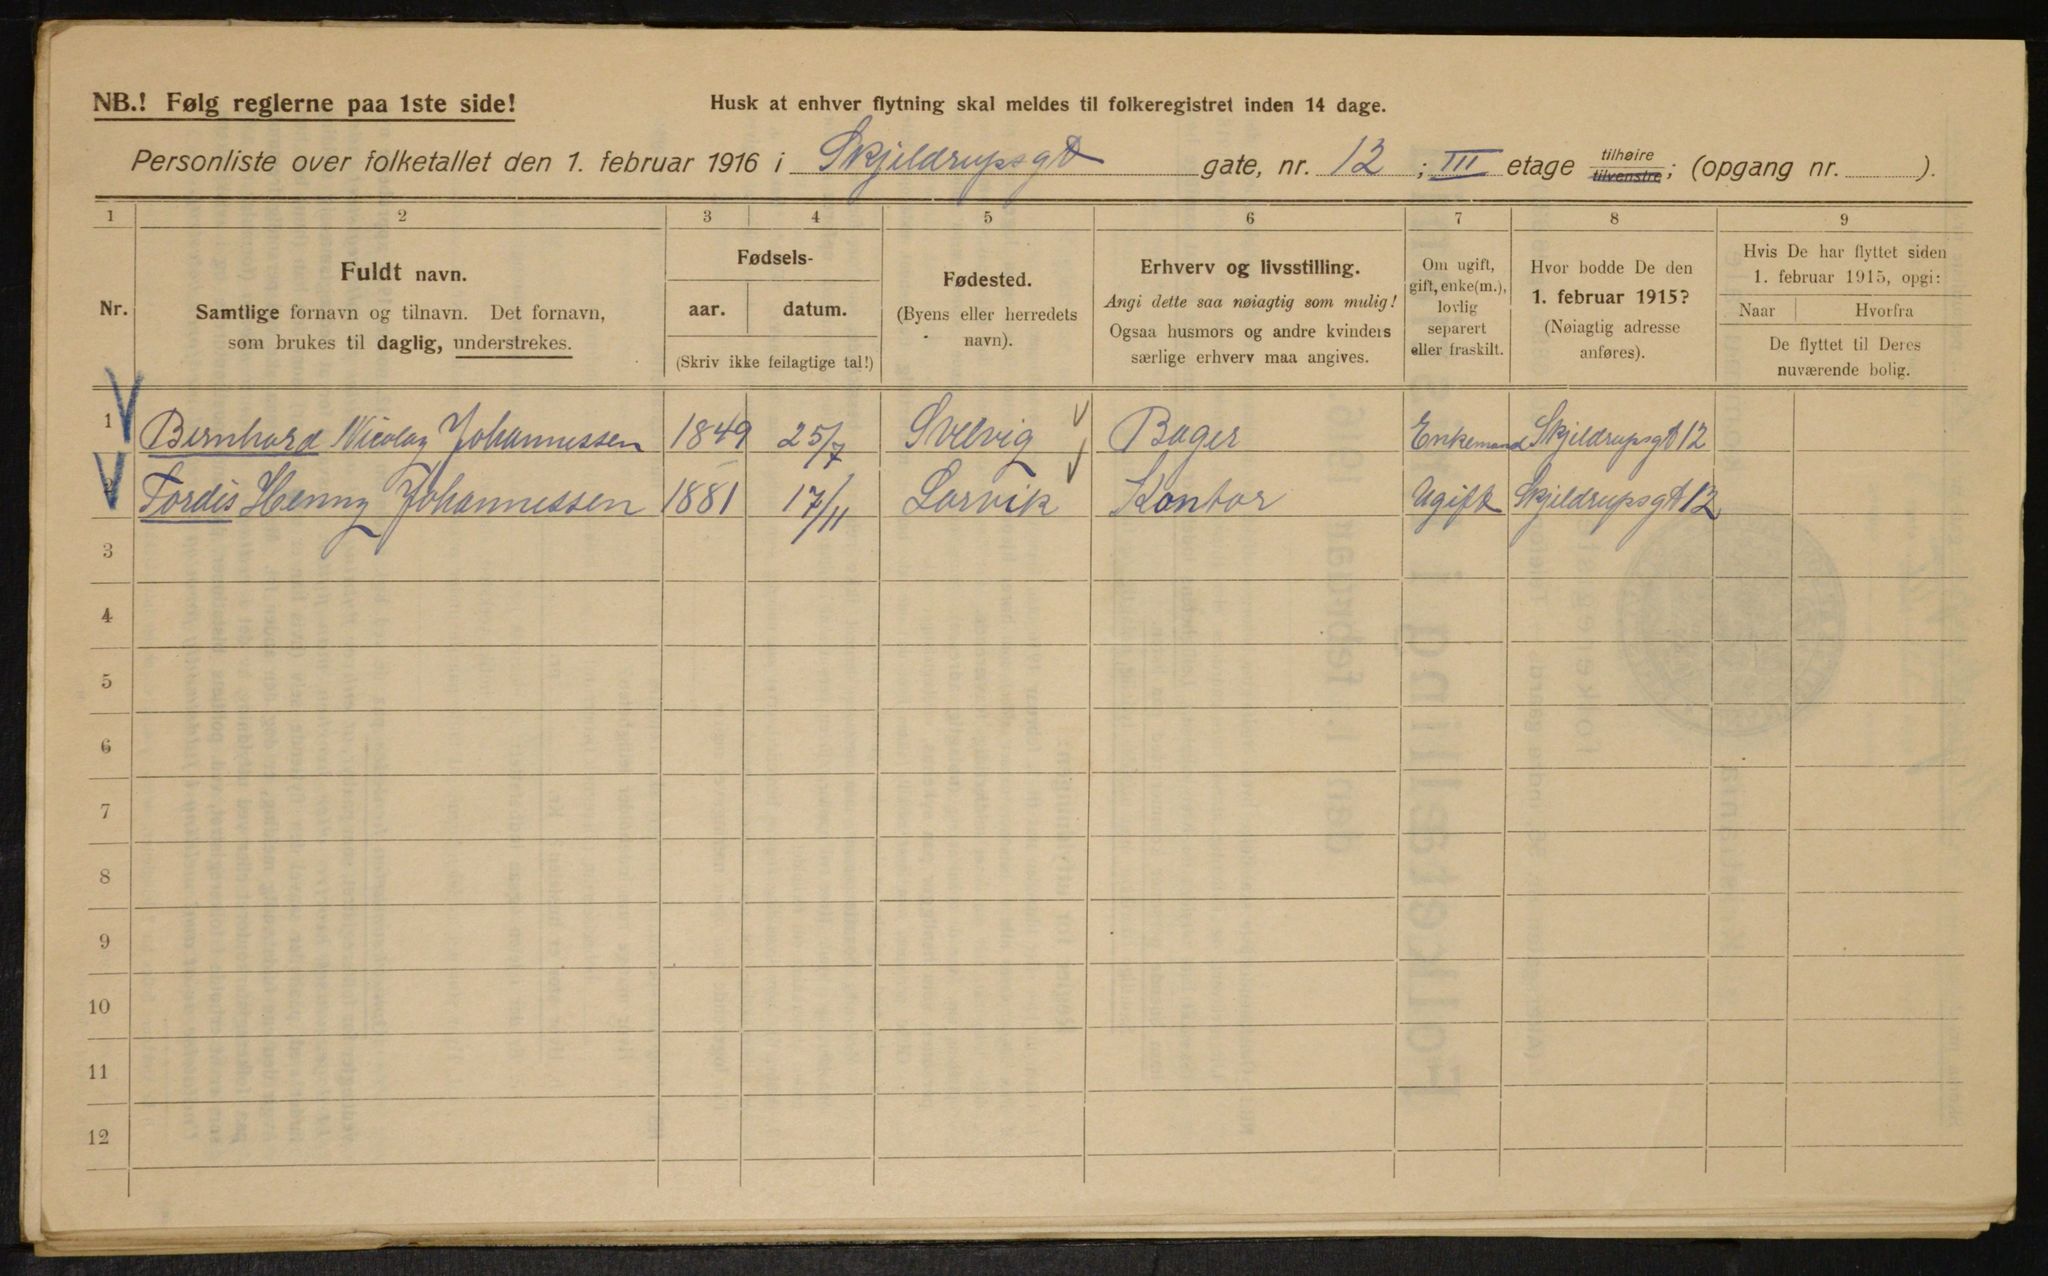 NB.! Følg reglerne paa 1ste side!
Husk at enhver flytning skal meldes til folkeregistret inden 14 dage.
Personliste over folketallet den 1. februar 1916 i Skjeldrupsgt gate, nr. 12; III etage tilhøire tilvenstre; (opgang nr. ).
1 2 3 4 5 6 7 8 9
Nr.
Fuldt navn.
Samtlige fornavn og tilnavn. Det fornavn,
som brukes til daglig, understrekes.
Fødsels-
aar. datum.
(Skriv ikke feilagtige tal!)
Fødested.
(Byens eller herredets
navn).
Erhverv og livsstilling.
Angi dette saa nøiagtig som mulig!
Ogsaa husmors og andre kvinders
særlige erhverv maa angives.
Om ugift,
gift, enke(m.),
lovlig
separert
eller fraskilt.
Hvor bodde De den
1. februar 1915?
(Nøiagtig adresse
anføres).
Hvis De har flyttet siden
1. februar 1915, opgi:
Naar Hvorfra
De flyttet til Deres
nuværende bolig.
1 Bernhard Nicolay Johannessen 1849 25/7 Svelvig Bager Enkemand Skjeldrupsgt 12
2 Tordis Henny Johannessen 1881 17/11 Larvik Kontor Ugift Skjeldrupsgt 12
3
4
5
6
7
8
9
10
11
12